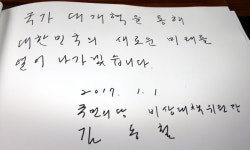 국가 대개혁을 통해
대한민국의 새로운 미래를
열어 나가겠습니다.
2017. 1. 1
국민의당 비상대책위원장
김 동 철